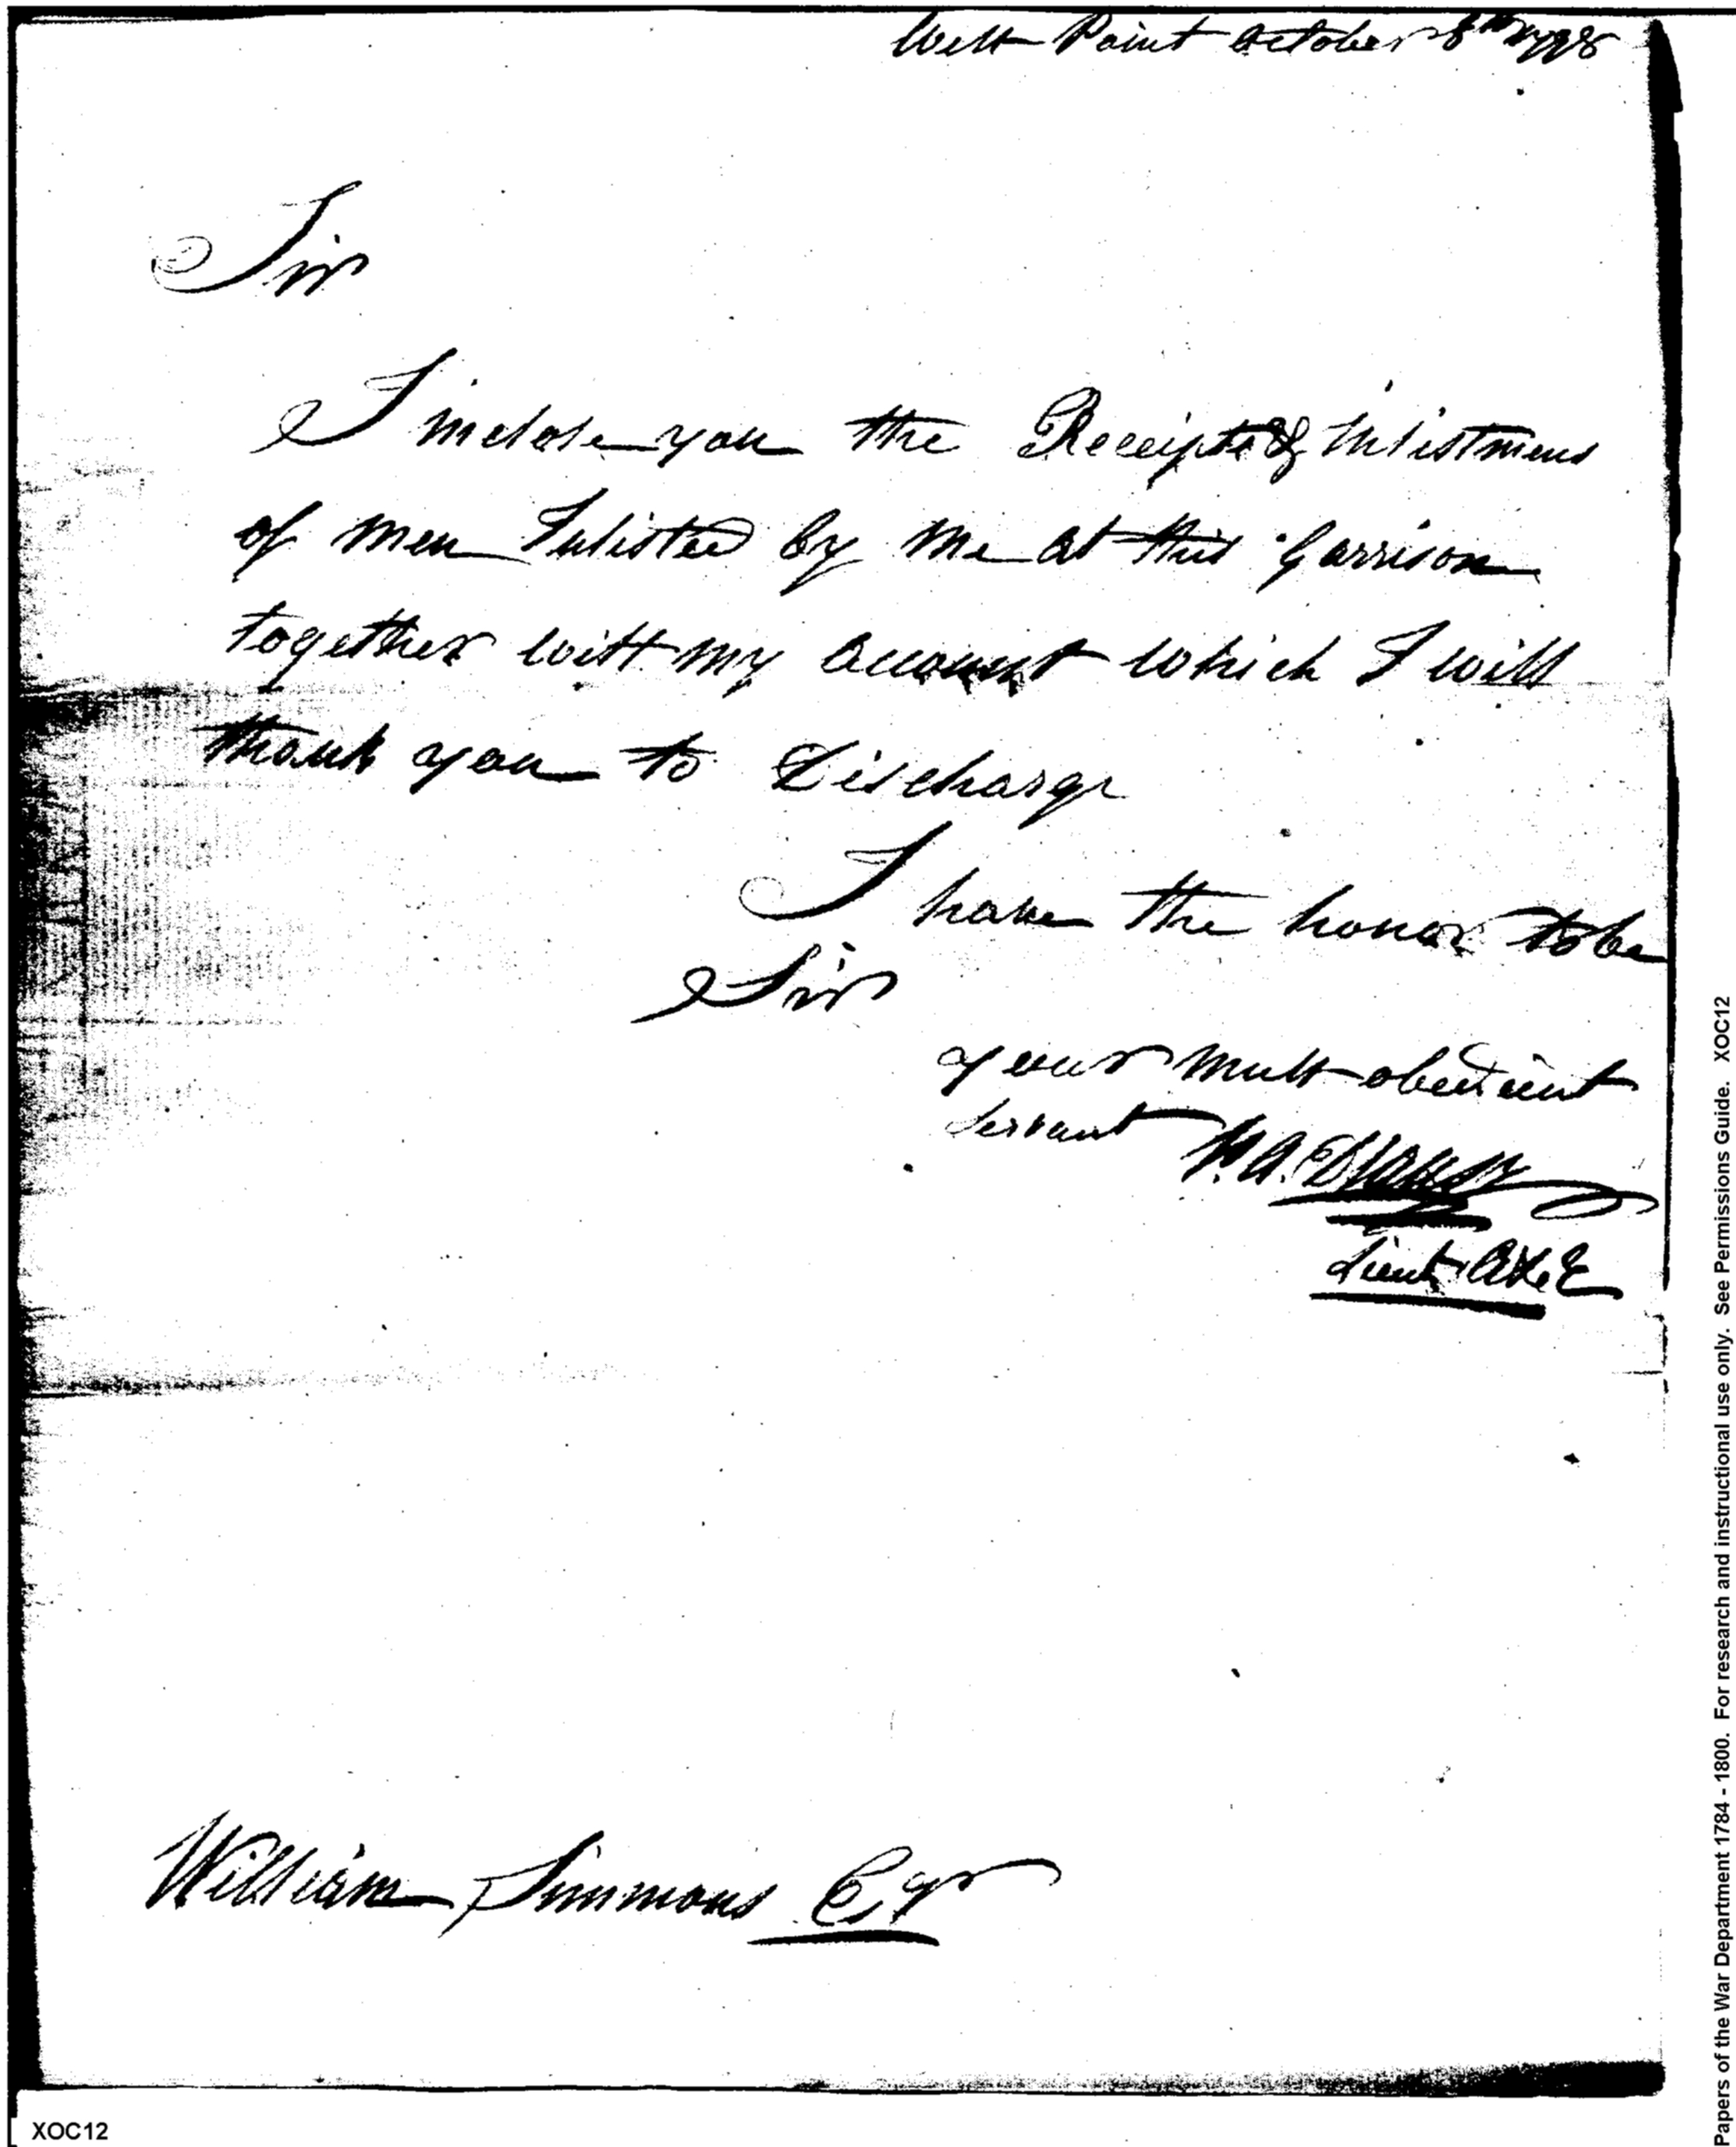 West Point October 8th 1798
Sir
I inclose you the Receipts & Inlistmens
of men Inlisted by me at this Garrison
together with my account which I will
thank you to Discharge
I have the honor to be
Sir
your most obedient
servant P. A.
Lieut A & E
William Simmons Esqr
XOC12
Papers of the War Department 1784 - 1800. For research and instructional use only. See Permissions Guide. XOC12